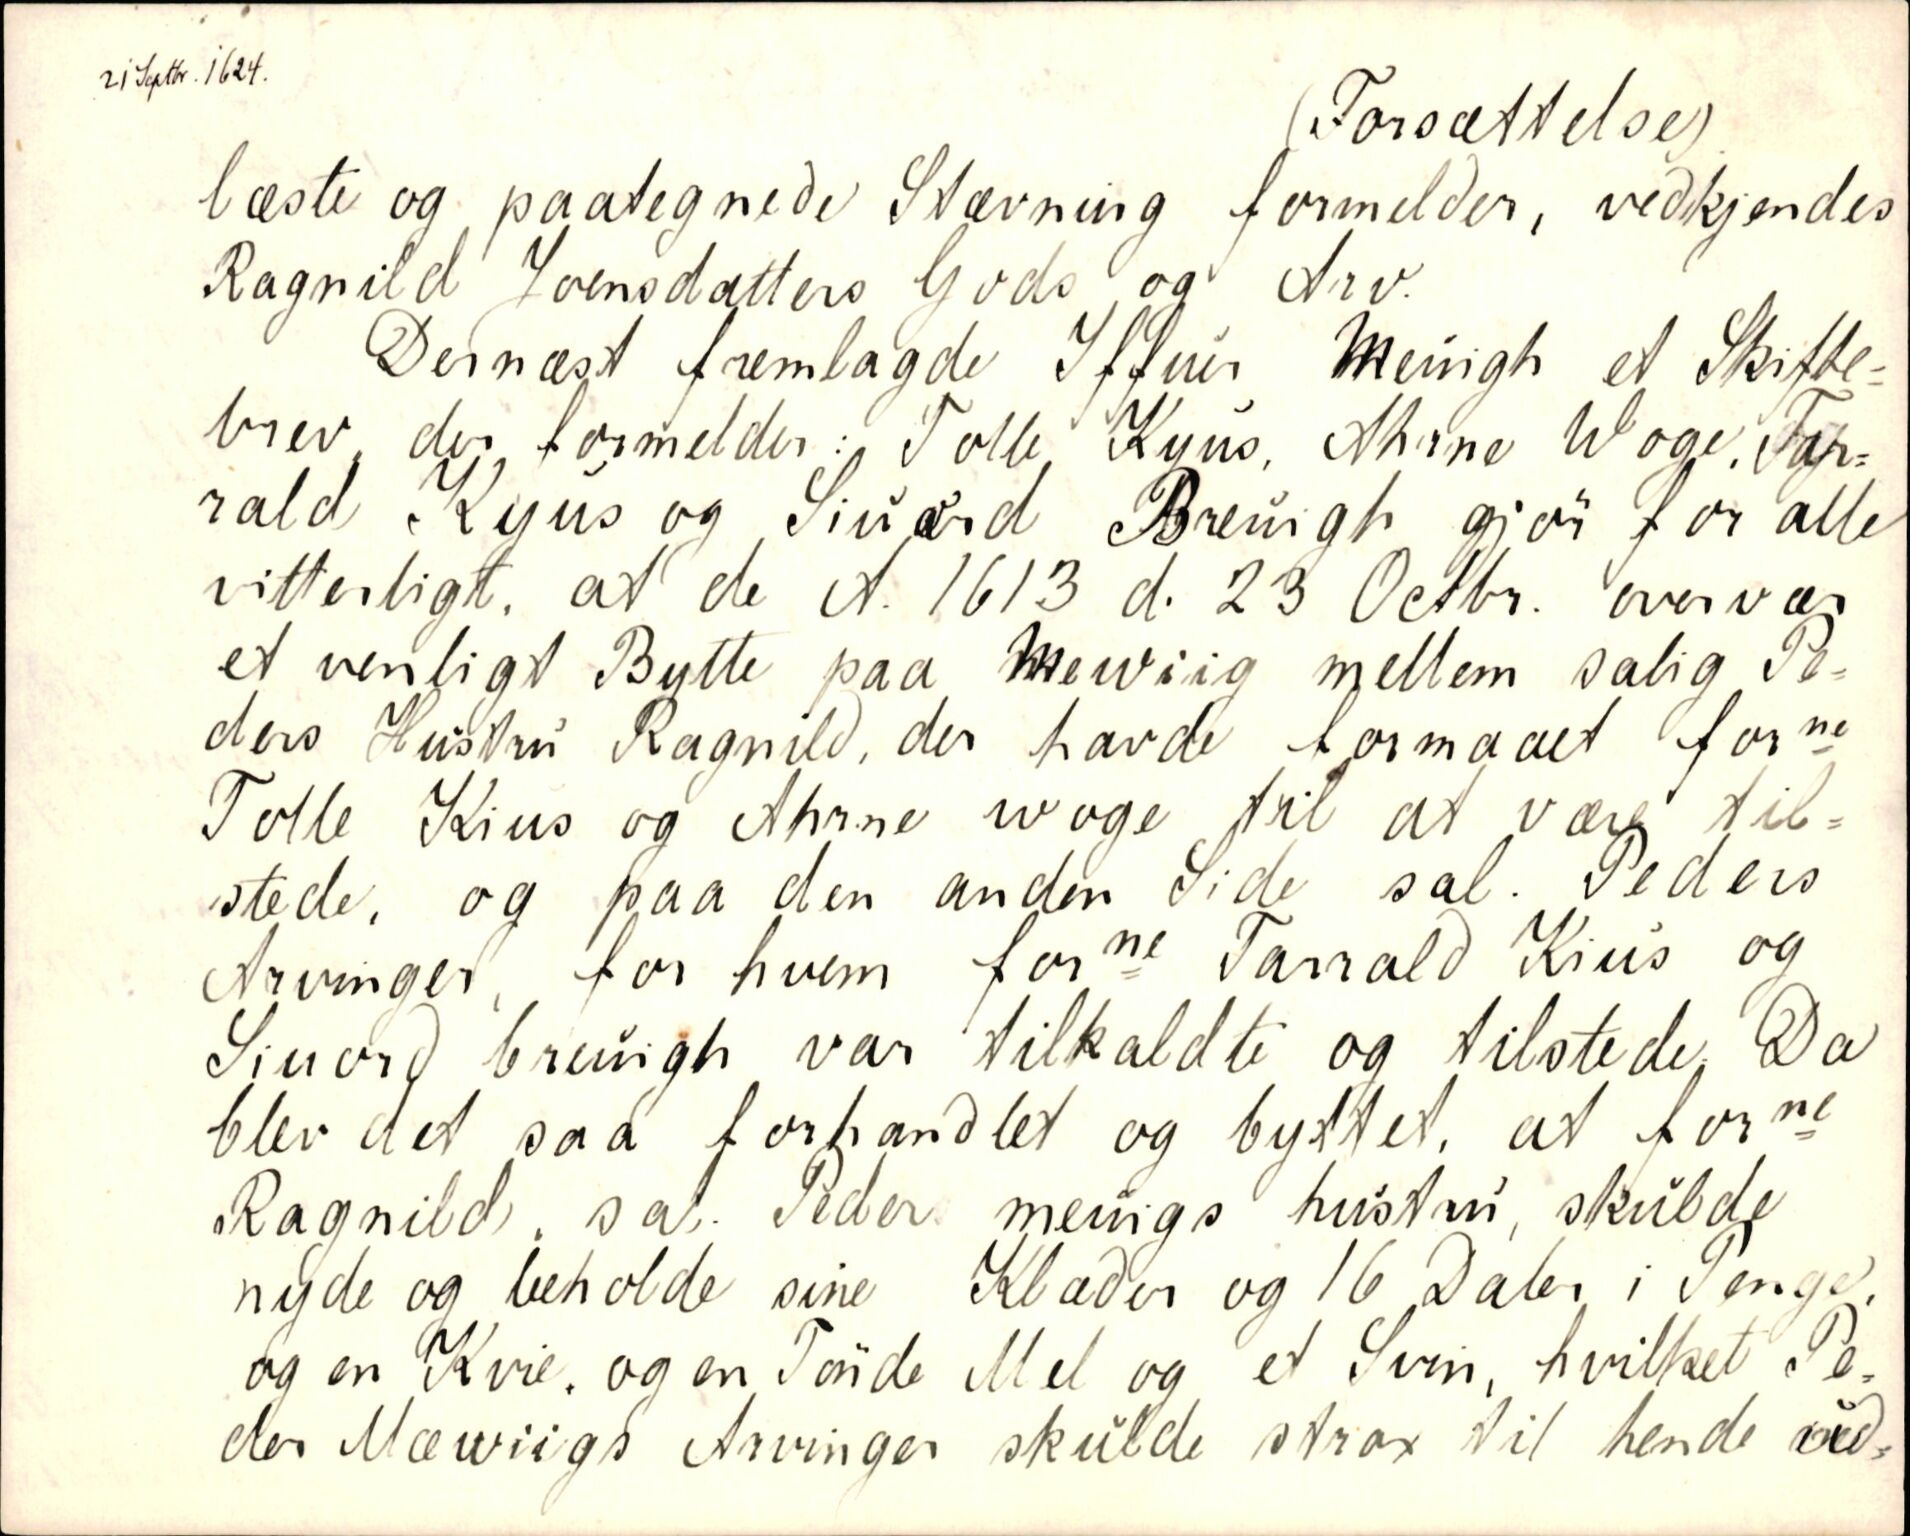 21 Septbr. 1624.
(Forsættelse)
læste og paategnede Stævning formelder, vedkjendes
Ragnild Joensdatters Gods og Arv.
Dernæst fremlagde Iffuer Meuigh et Skifte=
brev, der formelder: Tolle Kyus, Ahrne Woge, Tar=
rald Kyus og Siuord Breuigh gjör for alle
vitterligt, at de A. 1613 d. 23 Octbr. overvær
et venligt Bytte paa Mewiig mellem salig Pe=
ders Hustru Ragnild, der havde formaaet forne
Tolle Kius og Ahrne woge til at være til=
stede, og paa den anden Side sal. Peders
Arvinger, for hvem forne Tarrald Kius og
Siuord breuigh var tilkaldte og tilstede. Da
blev det saa forhandlet og byttet, at forne
Ragnild, sal. Peder meuigs hustru, skulde
nyde og beholde sine Klæder og 16 Daler i Penge,
og en Kvie, og en Tönde Mel og et Svin, hvilket Pe=
der Mæwiigs Arvinger skulde strax til hende ud=